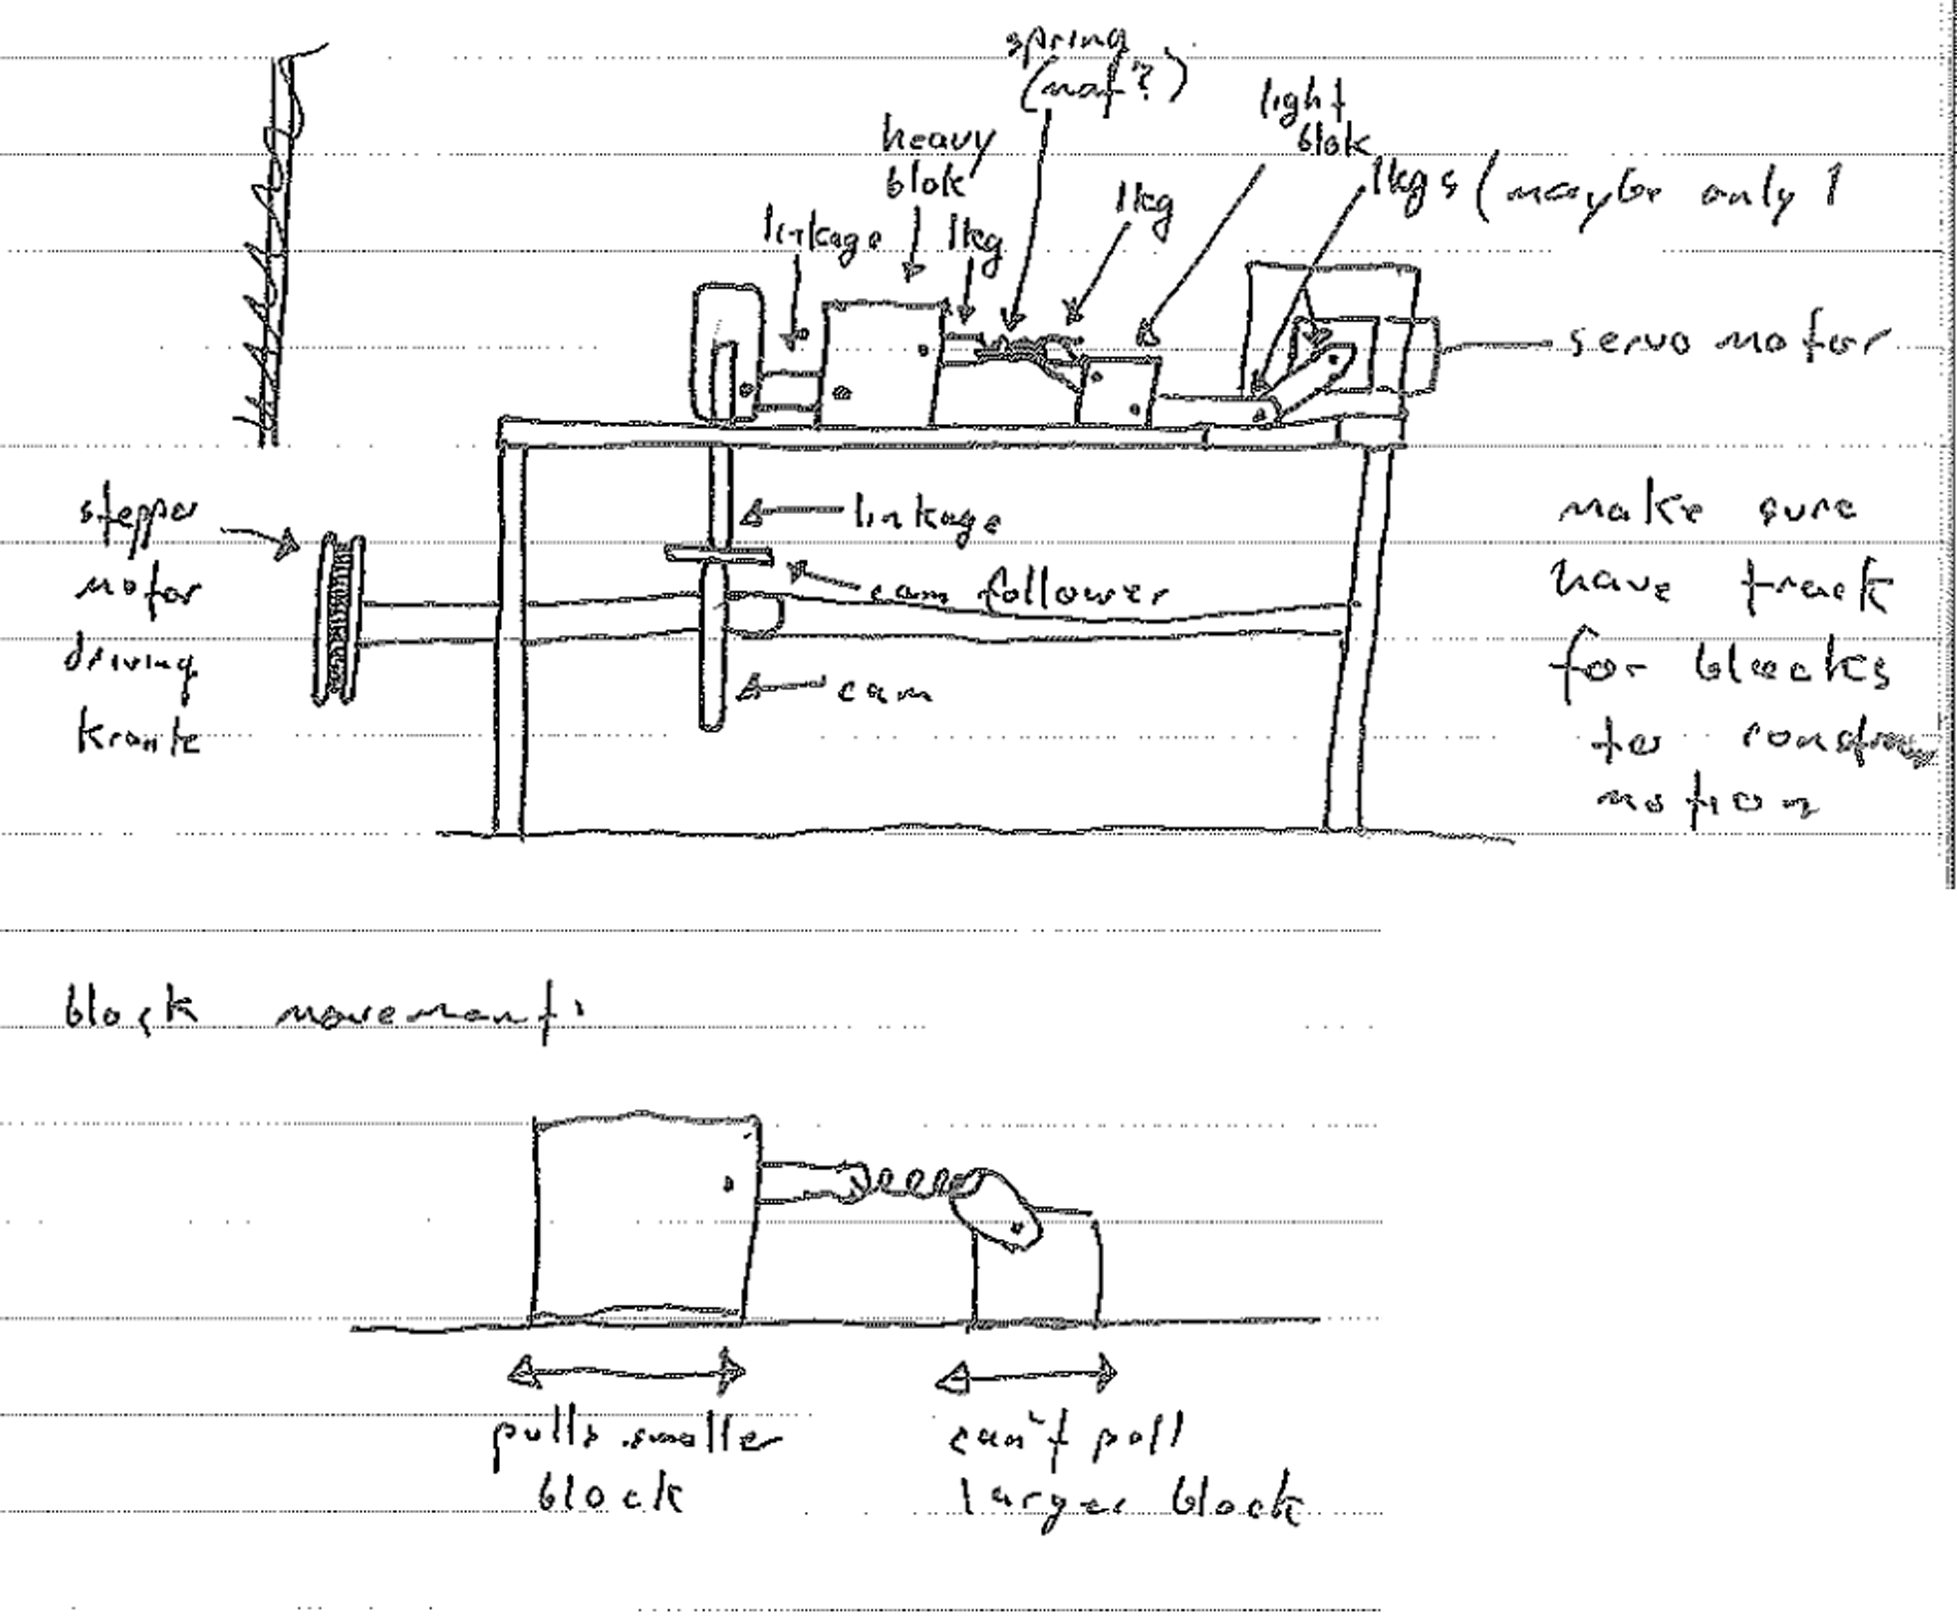 spring
(naf?)
light
blok
heavy
blok
1kg
1kgs (maybe only 1
linkage
1kg
servo motor
stepper
motor
driving
linkage
cam follower
cam
make sure
have track
for blocks
to
motion
block movement:
pulls smaller
block
can't pull
larger block